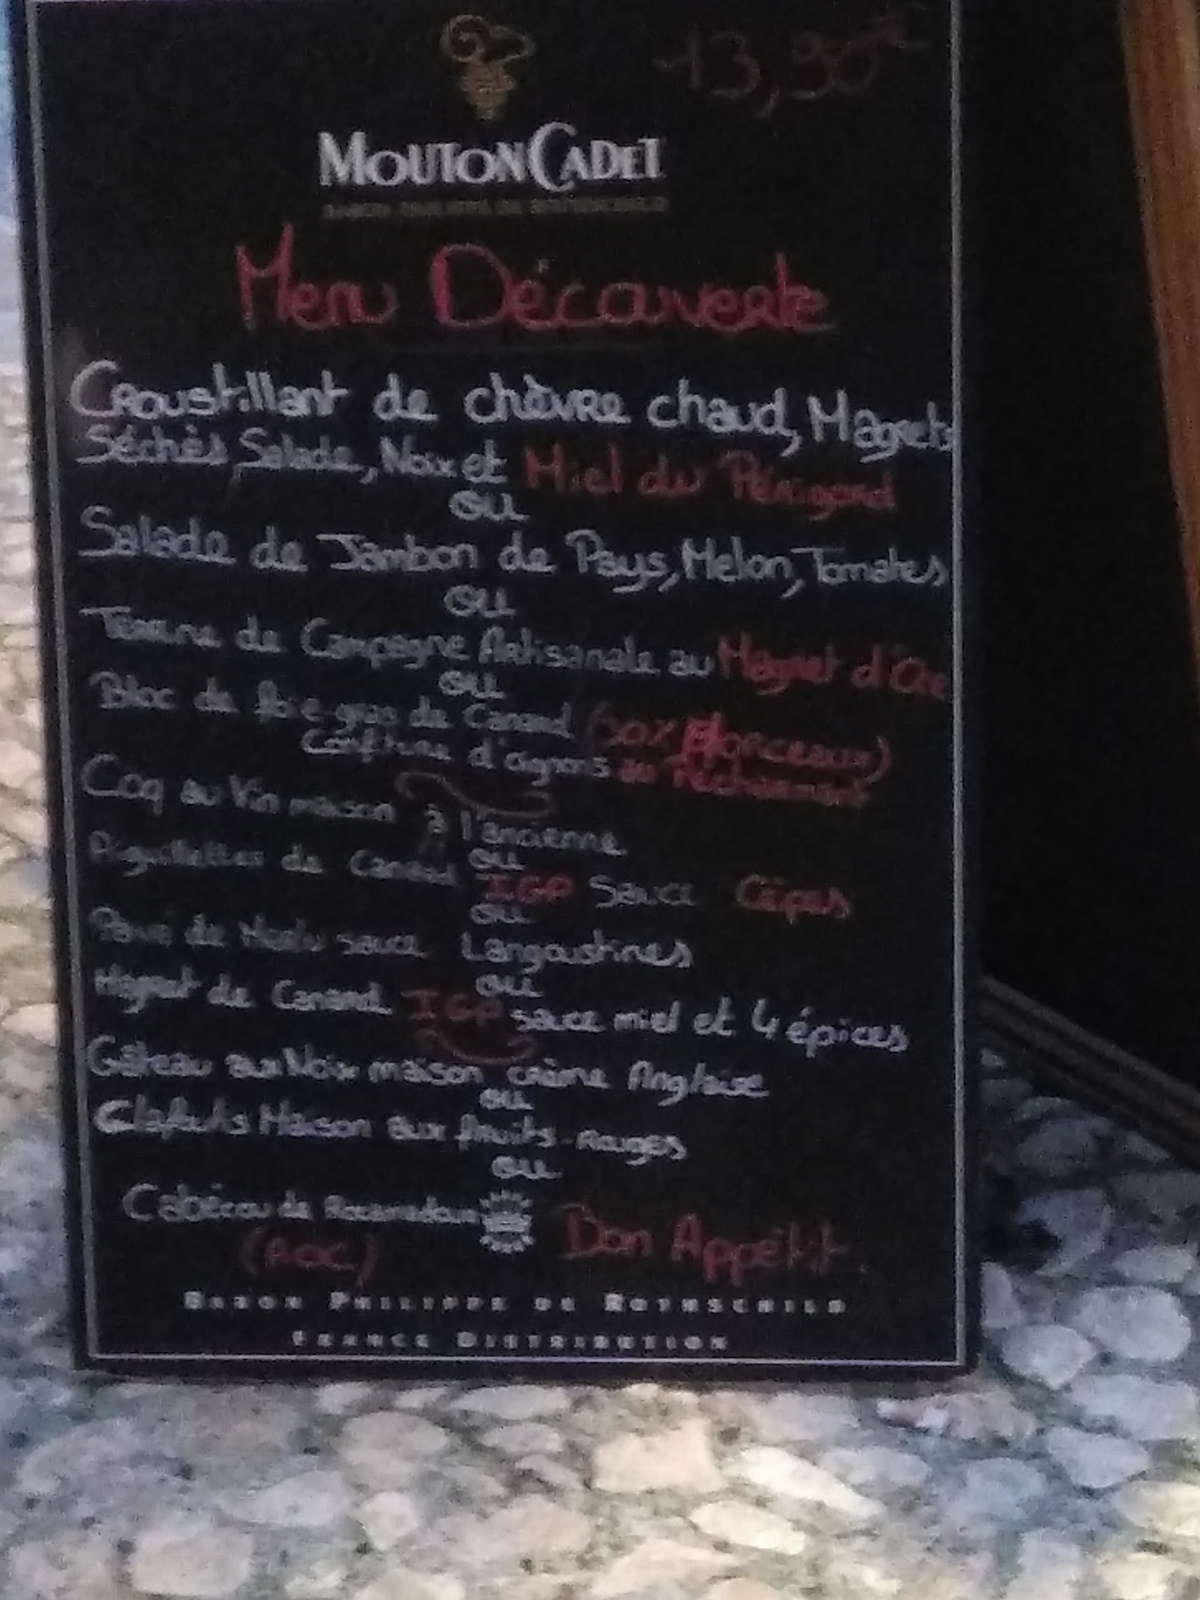 13,90€
MOUTON CADET
BARON PHILIPPE DE ROTHSCHILD
Menu Découverte
Croustillant de chèvre chaud, Magrets
Séchés, Salade, Noix et Miel du Périgord
ou
Salade de Jambon de Pays, Melon, Tomates
ou
Terrine de Campagne Artisanale au Magret d'Oie
ou
Bloc de foie-gras de Canard (30% Morceaux)
Confiture d'oignons
Coq au Vin maison à l'ancienne
ou
Aiguillettes de Canard IGP Sauce Cèpes
ou
Pavé de Merlu sauce Langoustines
ou
Magret de Canard IGP sauce miel et 4 épices
Gâteau aux Noix maison crème Anglaise
ou
Clafoutis Maison aux fruits-rouges
ou
Cabécou de Rocamadour
(AOC) Bon Appétit.
BARON PHILIPPE DE ROTHSCHILD
FRANCE DISTRIBUTION